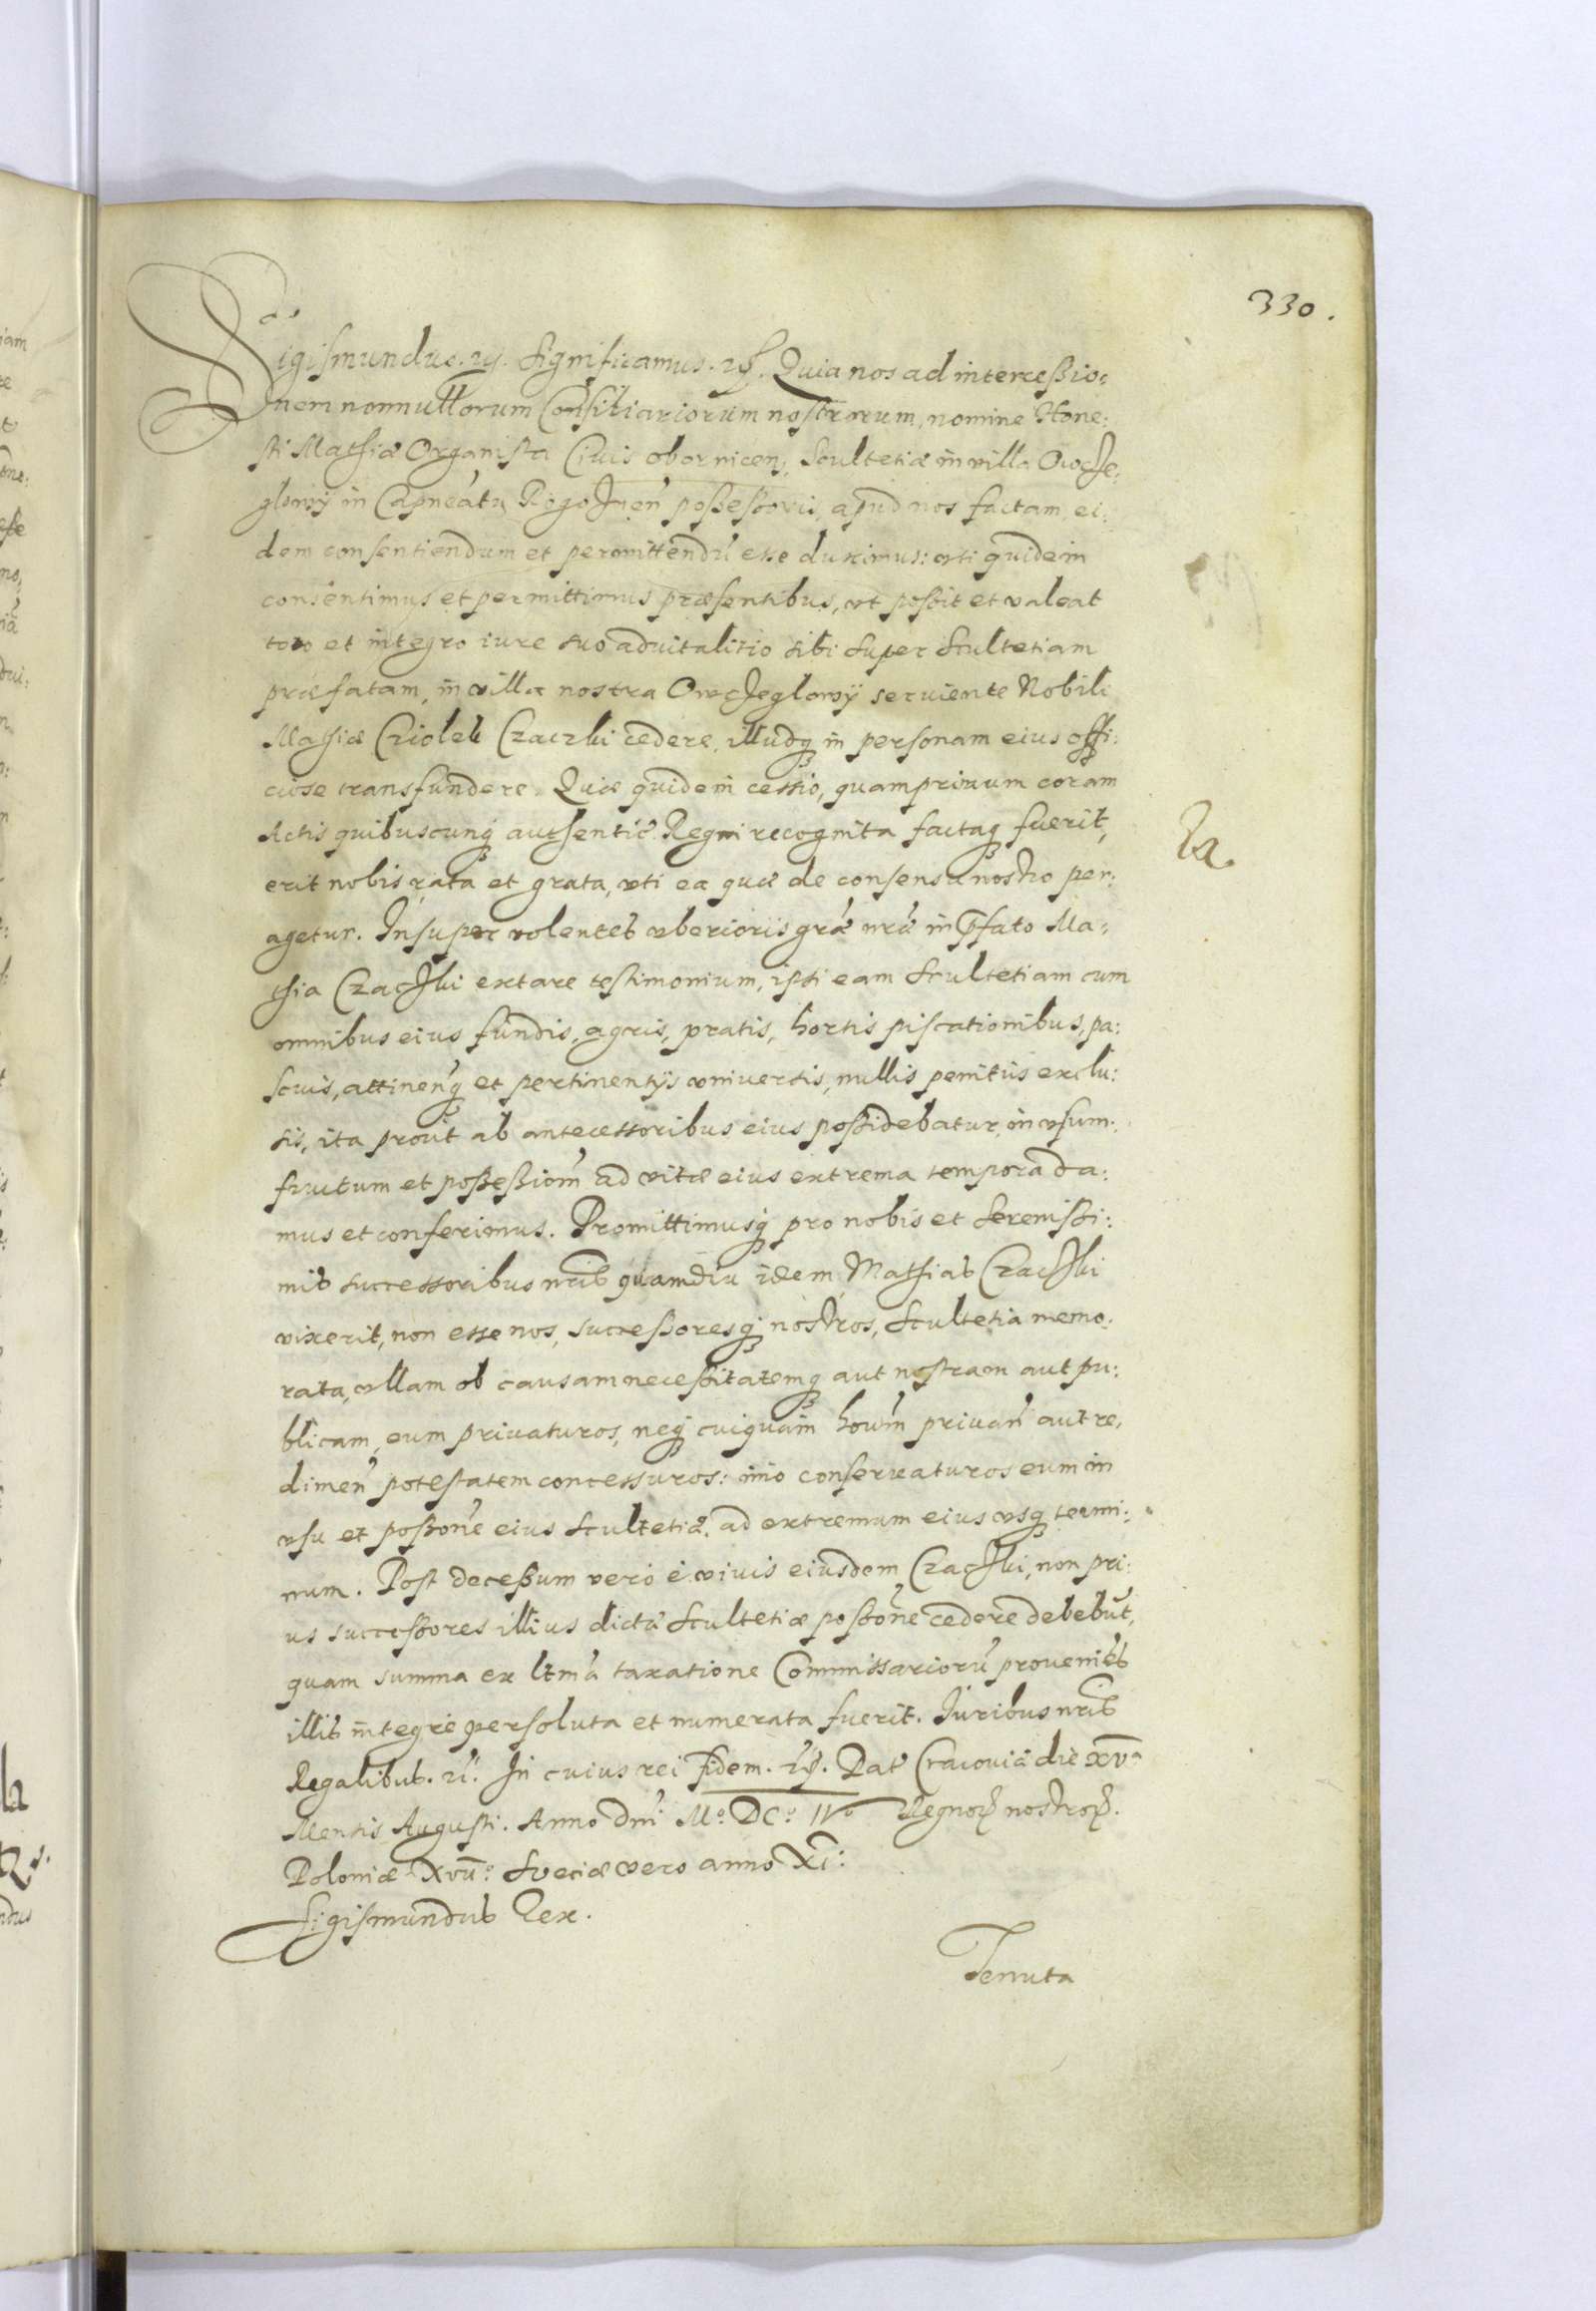 330.
Sigismundus. etc. Significamus. etc. Quia nos ad intercessio:
nem nonnullorum Consiliariorum nostrorum, nomine Hone:
sti Mathiæ Organista Civis obornicen, Scultetiæ in villa Owcze:
glowÿ in Capneatu Rogoznen possessoris, apud nos factam, ei:
dem consentiendum et permittendū esse duximus: vti quidem
consentimus et permittimus præsentibus, vt possit et valeat
toto et integro iure suo aduitalitio sibi super Scultetiam
præfatam, in villa nostra Owczeglowÿ seruiente Nobili
Mathiæ Cziolek Czaczki cedere, illudq in personam eius offi:
ciose transfundere. Quæ quidem cessio, quamprimum coram
Actis quibuscunq authentic Regni recognita factaq fuerit,
erit nobis rata et grata, vti ea quæ de consensu nostro per:
agetur. Insuper volentes vberioris græ nræ in pfato Ma:
thia Czaczki extare testimonium, isti eam Scultetiam cum
omnibus eius fundis, agris, pratis, hortis piscationibus, pa:
scuis, attinenq et pertinentÿs vniuersis, nullis penitus exclu:
sis, ita prout ab antecessoribus eius possidebatur, in vsum:
fructum et possessiom ad vitæ eius extrema tempora da:
mus et conferimus. Promittimusq pro nobis et Serenissi:
mis successoribus nris quamdiu idem Mathias Czaczki
vixerit, non esse nos, successoresq nostros, Scultetia memo:
rata, vllam ob causam necessitatemq aut nostram aut pu:
blicam, eum priuaturos, neq cuiquam houm priuan aut re,
dimen potestatem concessuros: imo conseruaturos eum in
vsu et possone eius Scultetiæ, ad extremum eius vsq termi:
num. Post decessum vero è viuis eiusdem Czaczki, non pri:
us successores illius dictæ Scultetiæ possone cedere debebūt,
quam summa ex ltma taxatione Commissariorū proveniēs
illis integre persoluta et numerata fuerit. Iuribus nris
Regalibus. etc. In cuius rei fidem. etc. Dat Cracoviæ die XVa
Mensis Augusti. Anno Dni Mo. DCo. IVo Regnorꝝ nostrorꝝ.
Poloniæ XVIIo. Sveciæ vero anno XI:
Sigismundus Rex.
Tenuta